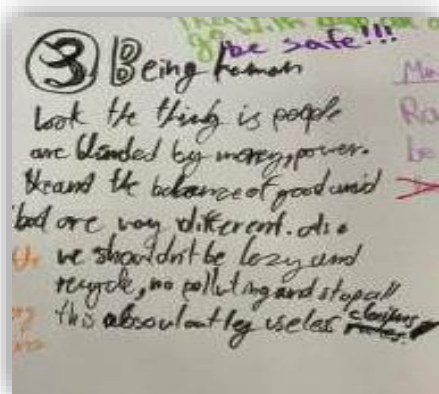 go with
be safe!!!
③ Being human
Look the thing is people
are blinded by money, power.
and the balance of good and
bad are way different. Also
we shouldn't be lazy and
recycle, no polluting and stop all
this absouloutley useless